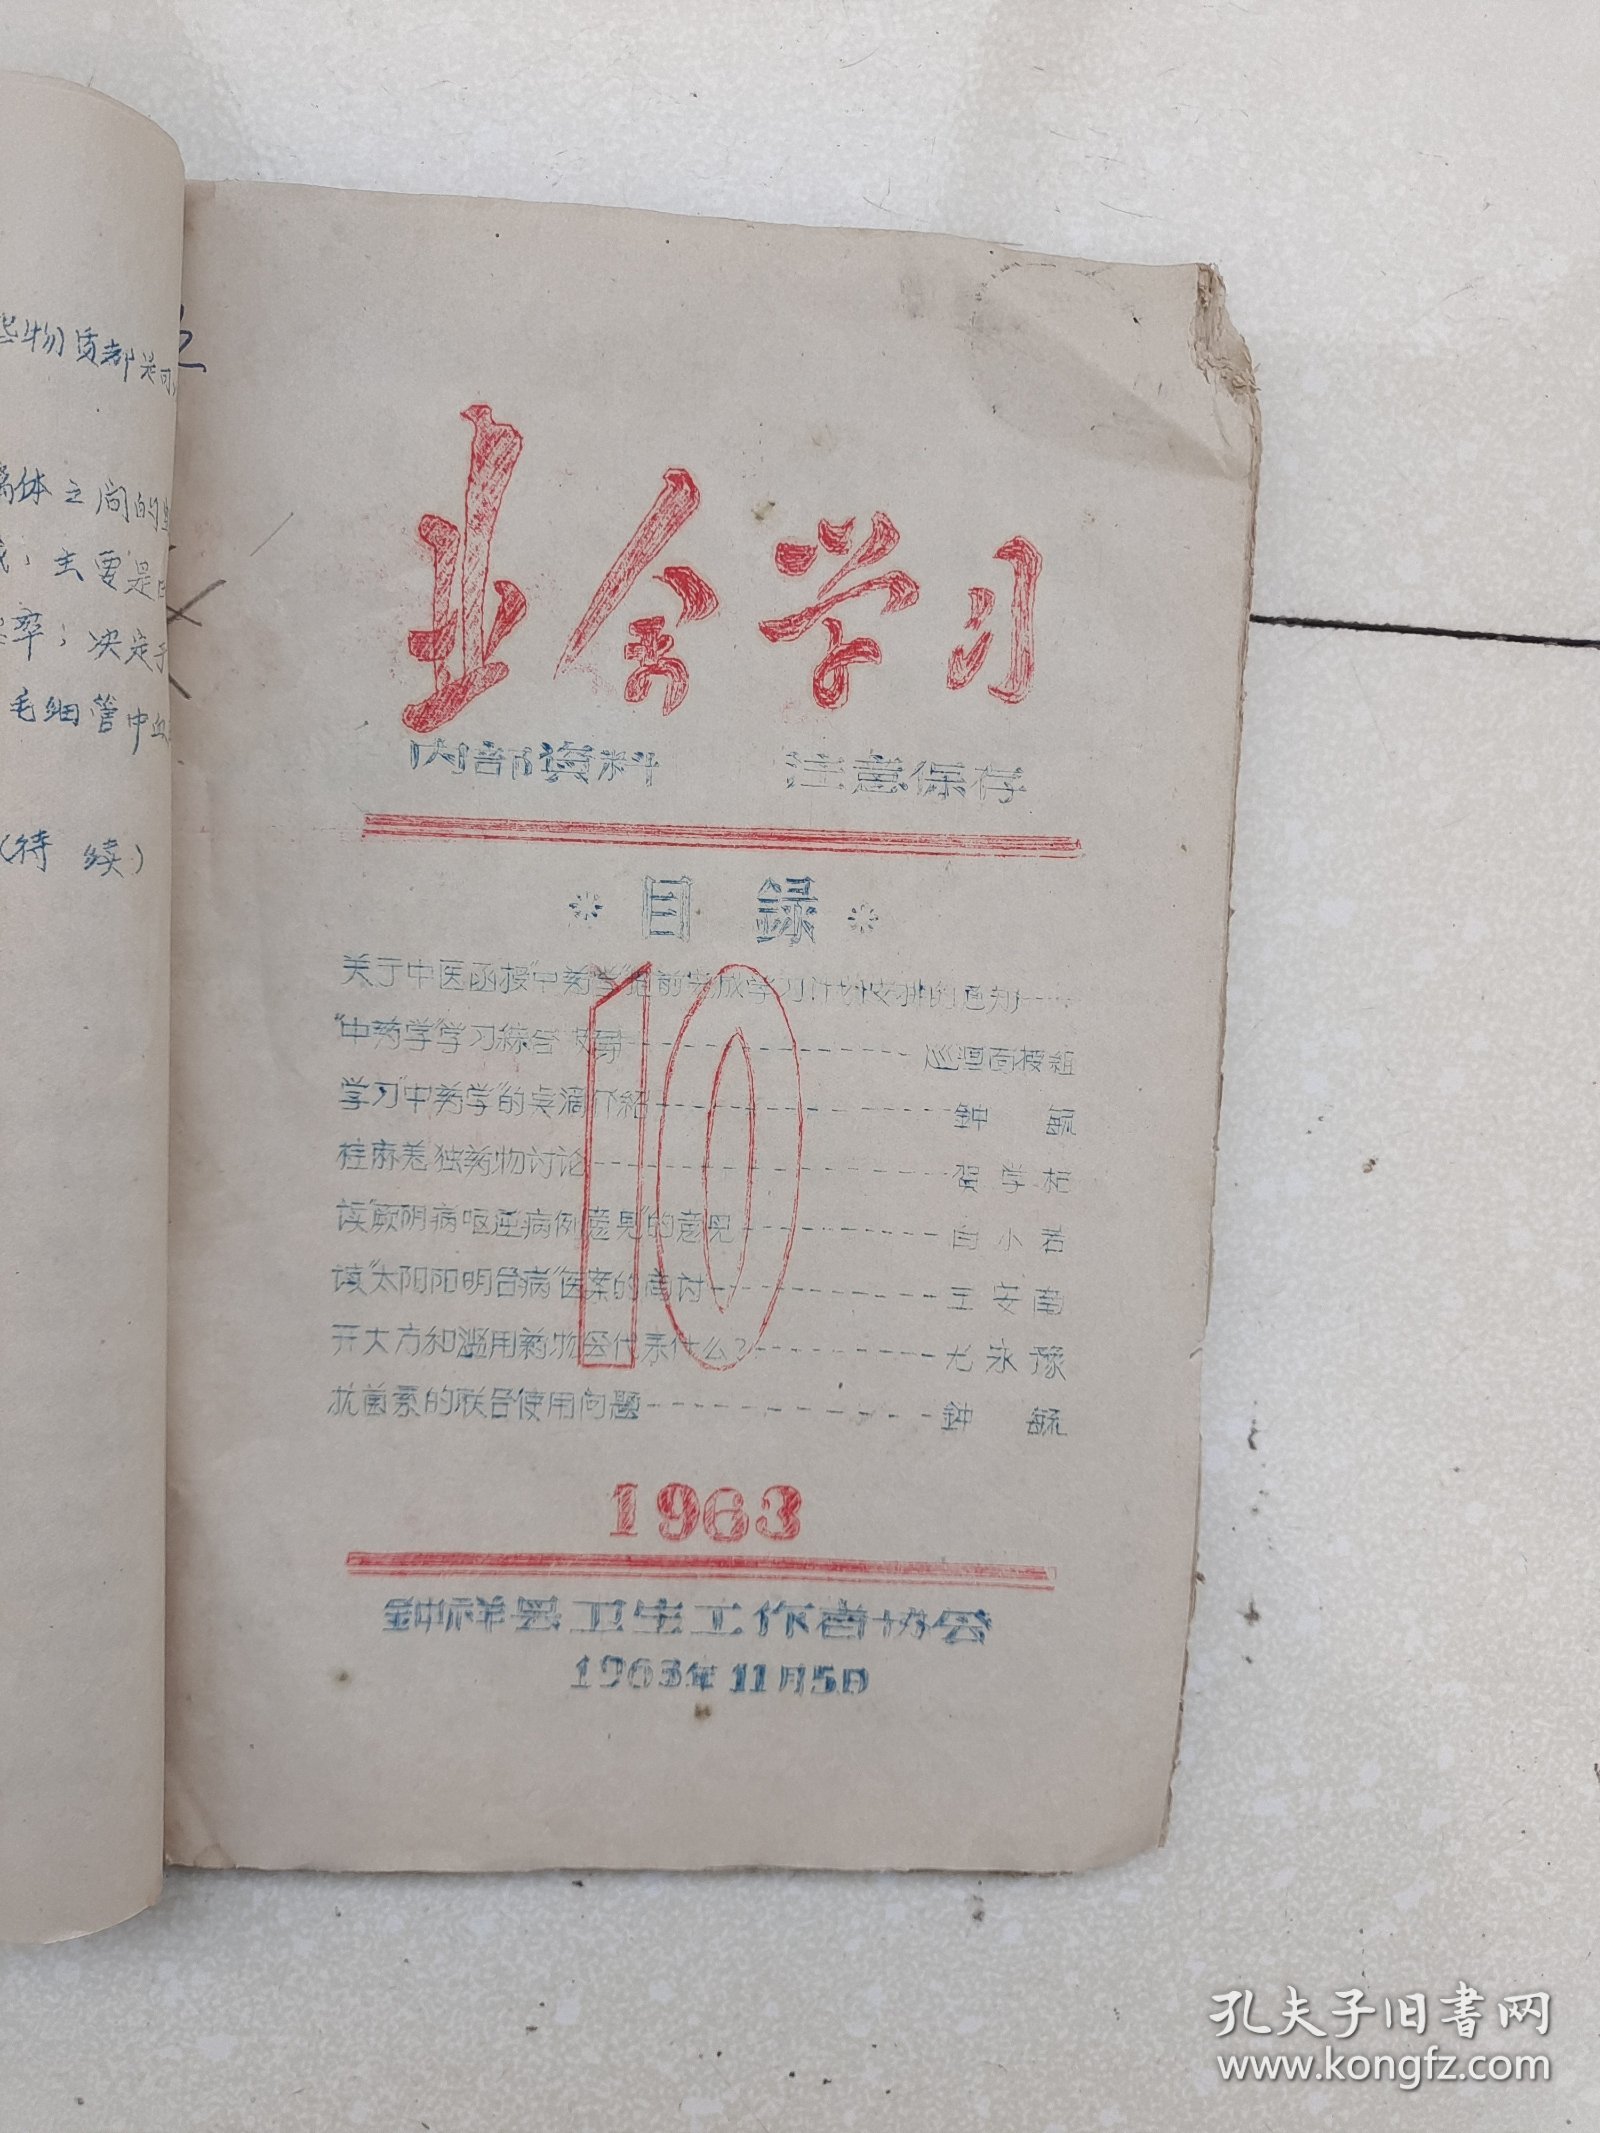 些物质都是可
离体之间的
主要是
率；决定于
毛细管中血
（待续）
业余学习
内部资料 注意保存
目録
10
关于中医函授“中药学”提前完成学习计划安排的通知
“中药学”学习綜合 巡迴面授組
学习“中药学”的点滴介紹 鈡 毓
桂麻羌独药物讨论 贺学柜
读“厥阴病呕逆病例意见”的意见 向小若
读“太阳阳明合病”医案的商讨 王安南
开大方和滥用药物 代表什么？ 尤永豫
抗菌素的联合使用问题 鈡 毓
1963
鈡祥县卫生工作者协会
1963年11月5日
孔夫子旧书网
www.kongfz.com